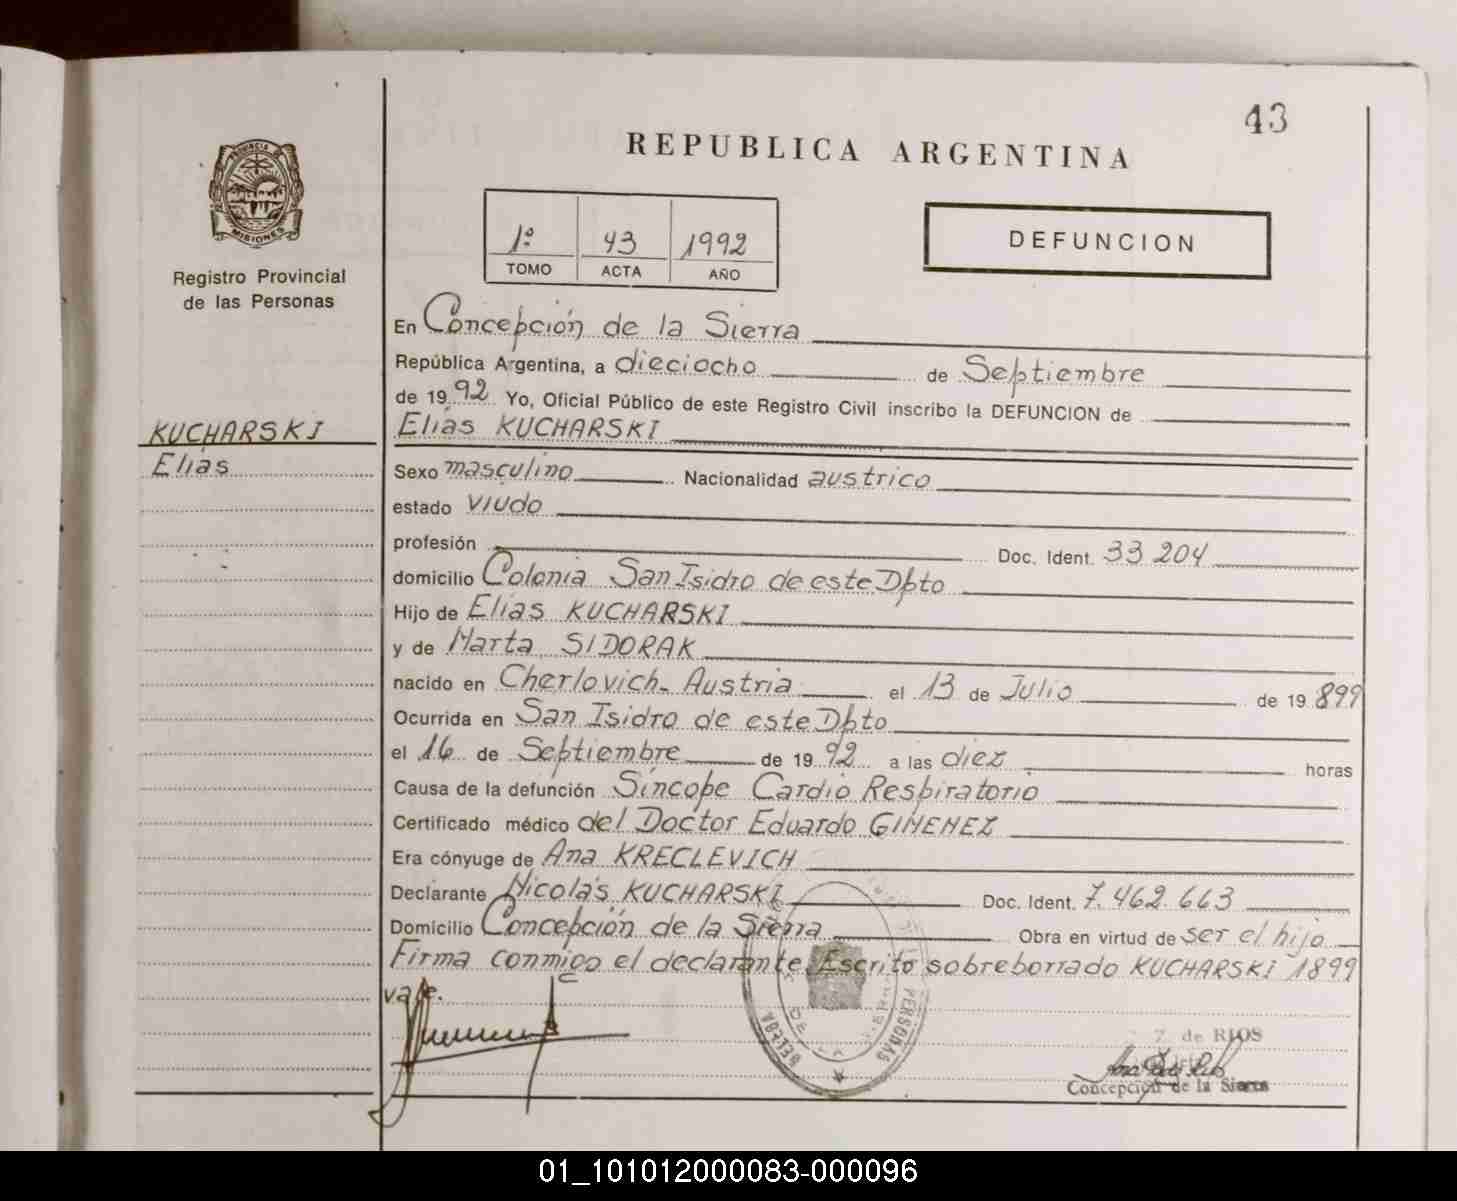 43
REPUBLICA ARGENTINA
PROVINCIA DE
MISIONES
Registro Provincial
de las Personas
1º 43 1992
TOMO ACTA AÑO
DEFUNCION
KUCHARSKI
Elías
En Concepción de la Sierra
República Argentina, a dieciocho de Septiembre
de 1992 Yo, Oficial Público de este Registro Civil inscribo la DEFUNCION de
Elías KUCHARSKI
Sexo masculino Nacionalidad austrico
estado viudo
profesión Doc. Ident. 33 204
domicilio Colonia San Isidro de este Dpto
Hijo de Elías KUCHARSKI
y de Marta SIDORAK
nacido en Cherlovich. Austria el 13 de Julio de 19 899
Ocurrida en San Isidro de este Dpto
el 16 de Septiembre de 1992 a las diez horas
Causa de la defunción Síncope Cardio Respiratorio
Certificado médico del Doctor Eduardo GIMENEZ
Era cónyuge de Ana KRECLEVICH
Declarante Nicolás KUCHARSKI Doc. Ident. 7.462.663
Domicilio Concepción de la Sierra Obra en virtud de ser el hijo
Firma conmigo el declarante. Escrito sobreborrado KUCHARSKI 1899
vale.
PERSONAS
de RIOS
Concepción de la Sierra
01_101012000083-000096